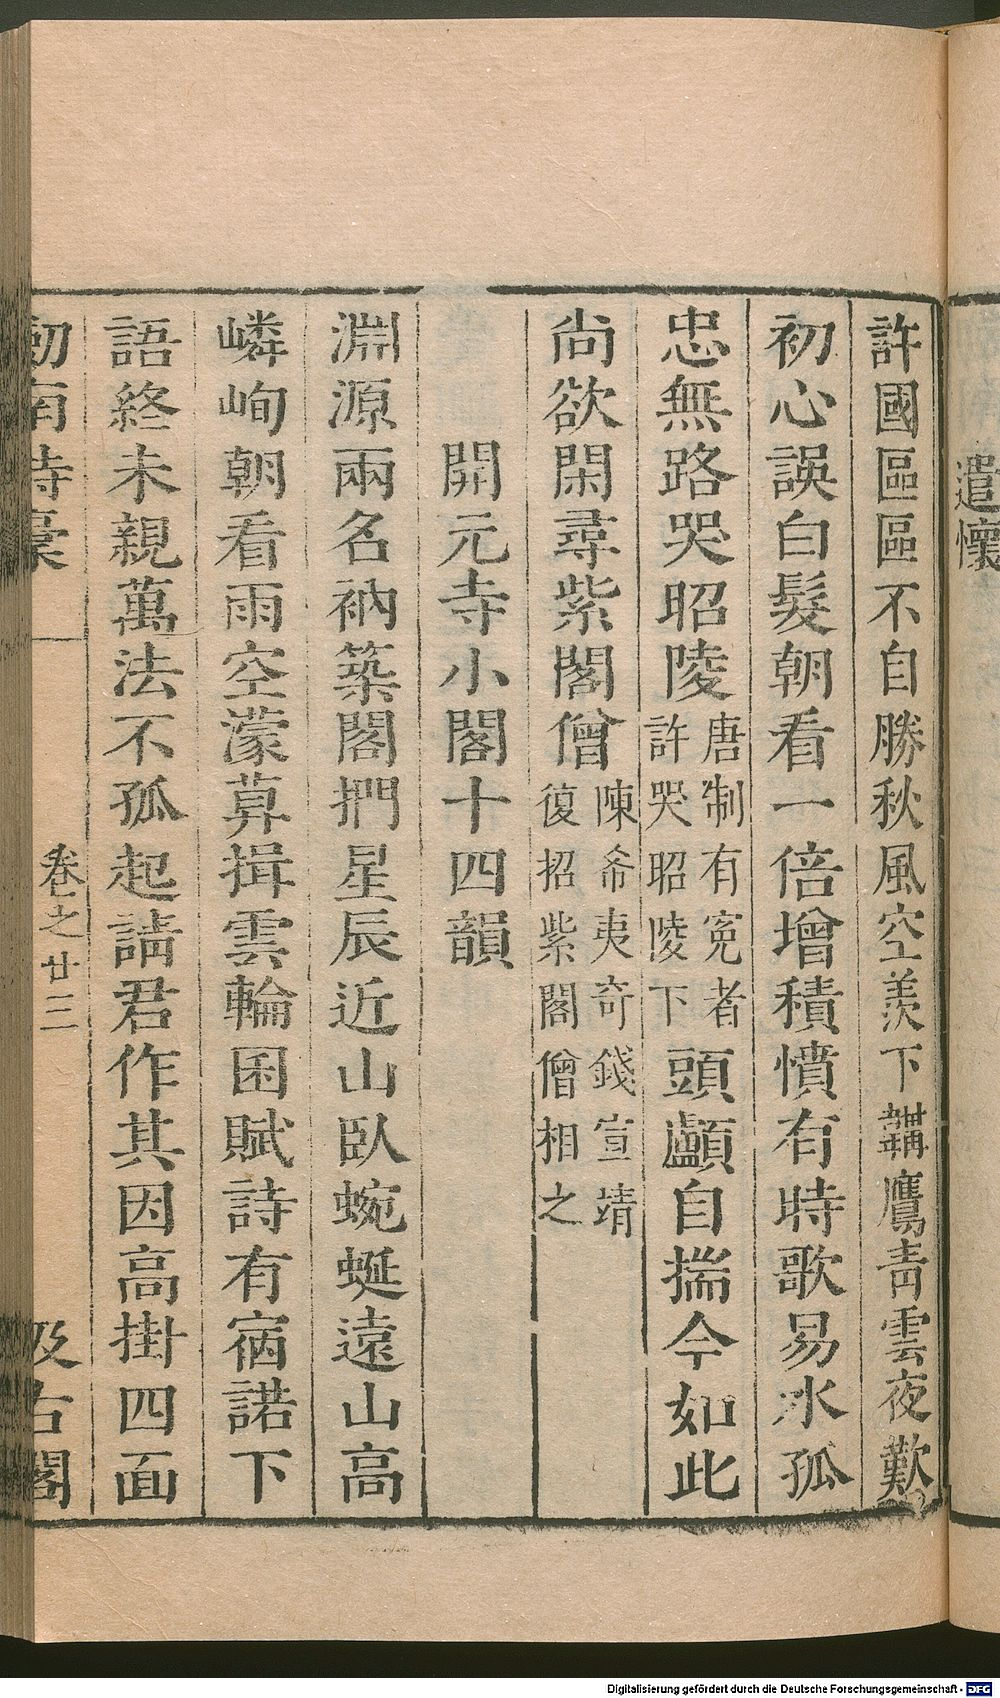 遣懷
許國區區不自勝秋風空羨下韝鷹青雲夜歎
初心誤白髮朝看一倍增積憤有時歌易水孤
忠無路哭昭陵唐制有寃者許哭昭陵下頭顱自揣今如此
尚欲閑尋紫閣僧陳希夷奇錢宣靖復招紫閣僧相之
開元寺小閣十四韻
淵源兩名衲築閣捫星辰近山臥蜿蜒遠山高
嶙峋朝看雨空濛莫揖雲輪囷賦詩有宿諾下
語終未親萬法不孤起請君作其因高掛四面
劒南詩稾
卷之廿三
汲古閣
Digitalisierung gefördert durch die Deutsche Forschungsgemeinschaft - DFG